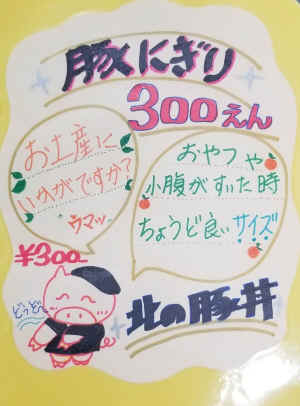 豚にぎり
300えん
お土産に
いかがですか?
ウマッ
おやつや
小腹がすいた時
ちょうど良いサイズ
¥300
どうぞ〜
北の豚丼